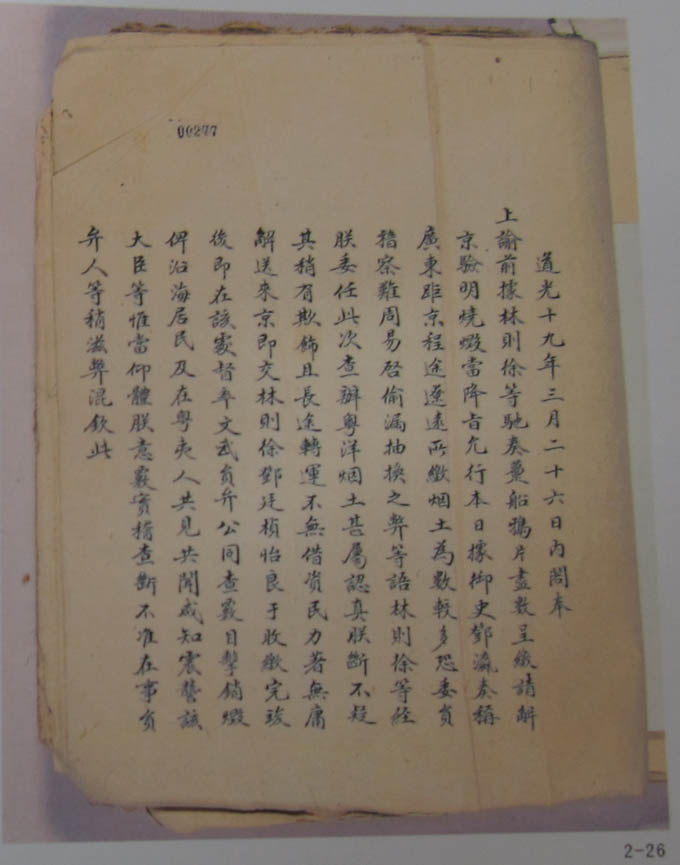 00277
道光十九年三月二十六日內閣奉
上諭前據林則徐等馳奏躉船鴉片盡數呈繳請解
京驗明燒燬當降旨允行本日據御史鄧瀛奏稱
廣東距京程途遼遠所繳烟土為數較多恐委員
稽察難周易啓偷漏抽換之弊等語林則徐等經
朕委任此次查辦粵洋烟土甚屬認真朕斷不疑
其稍有欺飾且長途轉運不無借資民力著無庸
解送來京即交林則徐鄧廷楨怡良于收繳完竣
後即在該處督率文武員弁公同查覈目擊銷燬
俾沿海居民及在粵夷人共見共聞咸知震讋該
大臣等惟當仰體朕意覈實稽查斷不准在事員
弁人等稍滋弊混欽此
2-26